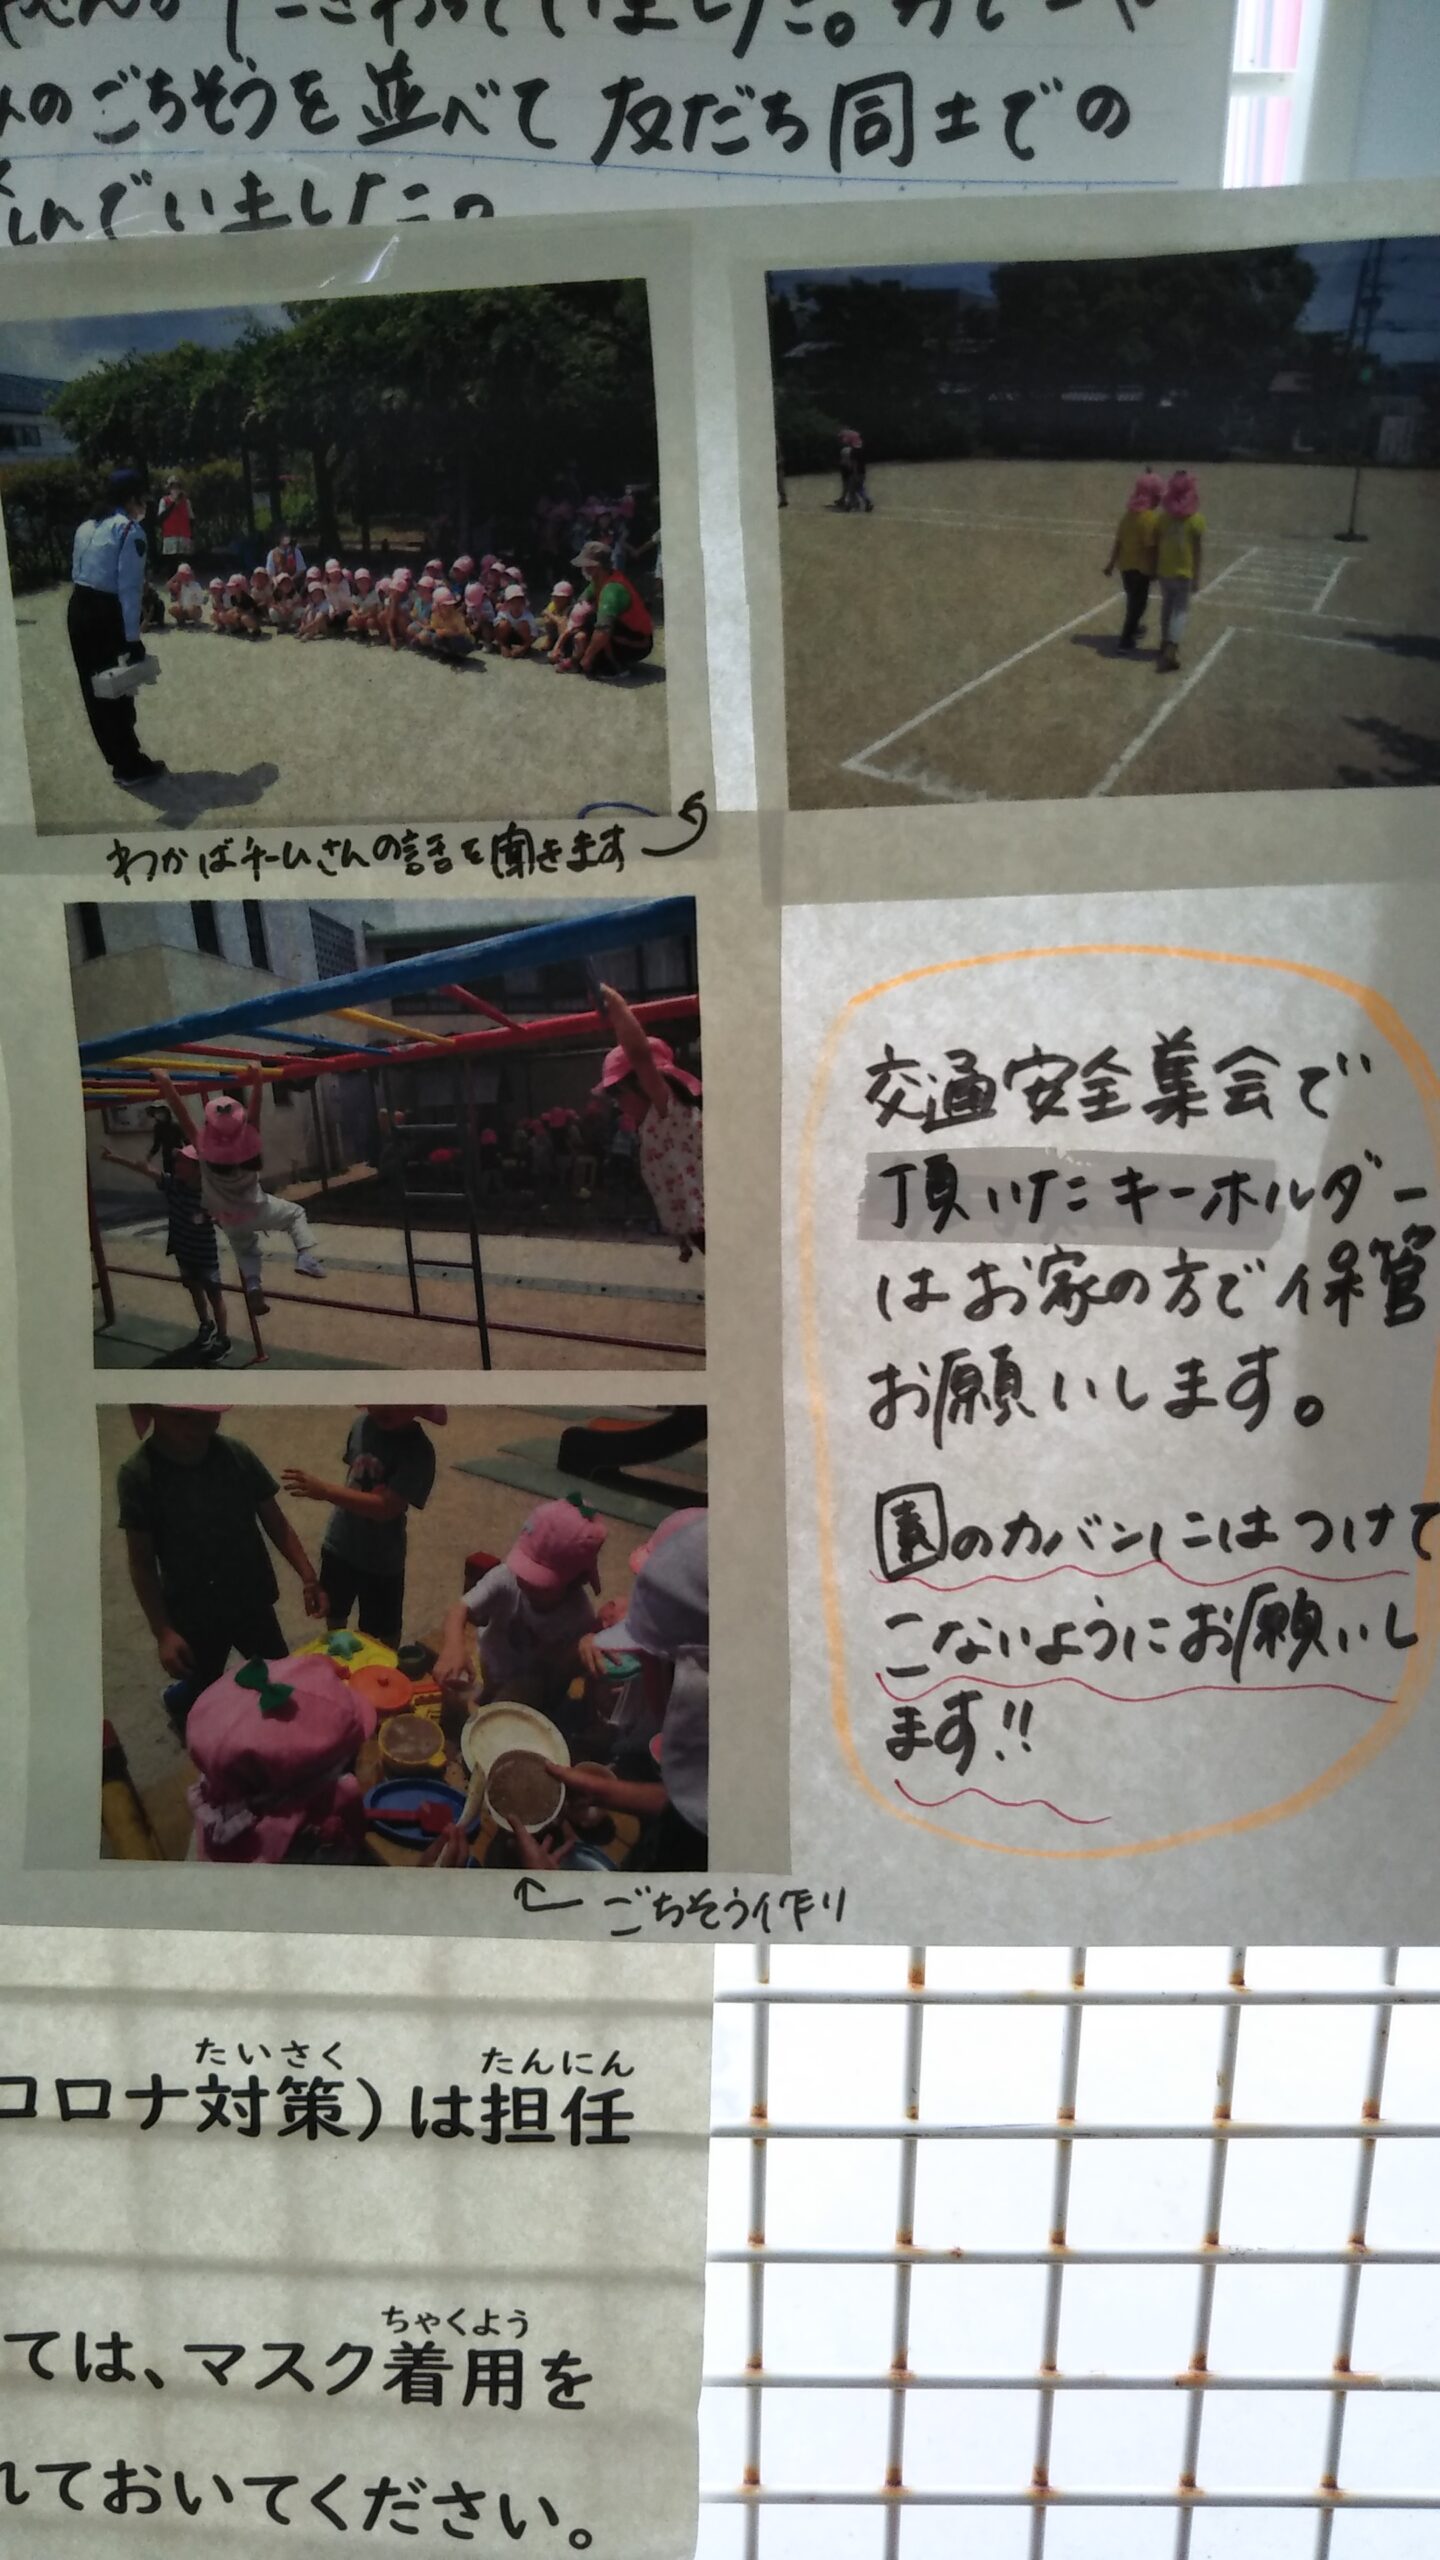 のごちそうを並べて友だち同士での
んでいました。
わかばチームさんの話を聞きます
交通安全集会で
頂いたキーホルダー
はお家の方で保管
お願いします。
園のカバンにはつけて
こないようにお願いし
ます!!
ごちそう作り
たいさく たんにん
コロナ対策)は担任
ちゃくよう
ては、マスク着用を
れておいてください。